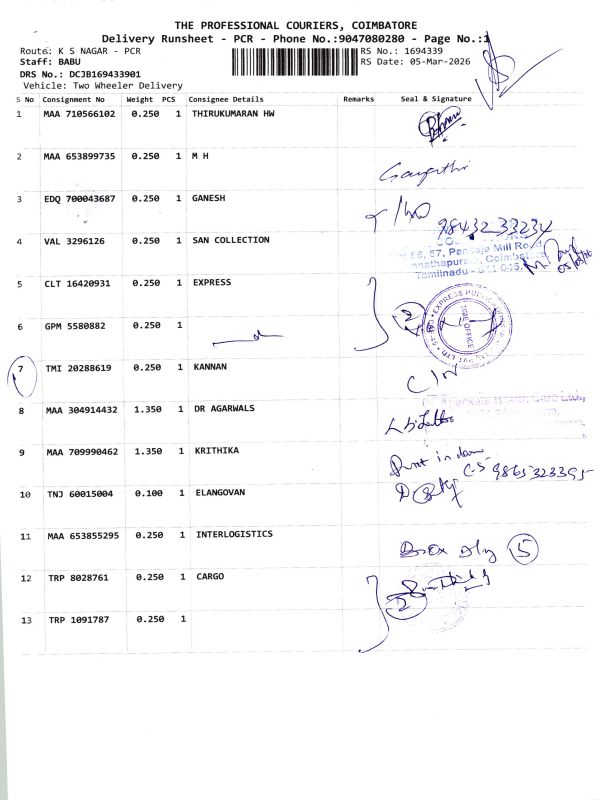 THE PROFESSIONAL COURIERS, COIMBATORE
Delivery Runsheet - PCR - Phone No.:9047080280 - Page No.:1
Route: K S NAGAR - PCR RS No.: 1694339
Staff: BABU RS Date: 05-Mar-2026
DRS No.: DCJB169433901
Vehicle: Two Wheeler Delivery
S No Consignment No Weight PCS Consignee Details Remarks Seal & Signature
1 MAA 710566102 0.250 1 THIRUKUMARAN HW
2 MAA 653899735 0.250 1 M H
3 EDQ 700043687 0.250 1 GANESH
98432 33234
4 VAL 3296126 0.250 1 SAN COLLECTION
67, Pankaja Mill Road
Coimbatore
Tamilnadu - 641 045
5 CLT 16420931 0.250 1 EXPRESS
2
6 GPM 5580882 0.250 1
7 TMI 20288619 0.250 1 KANNAN
8 MAA 304914432 1.350 1 DR AGARWALS
9 MAA 709990462 1.350 1 KRITHIKA
9865323395
10 TNJ 60015004 0.100 1 ELANGOVAN
11 MAA 653855295 0.250 1 INTERLOGISTICS
5
12 TRP 8028761 0.250 1 CARGO
2
13 TRP 1091787 0.250 1